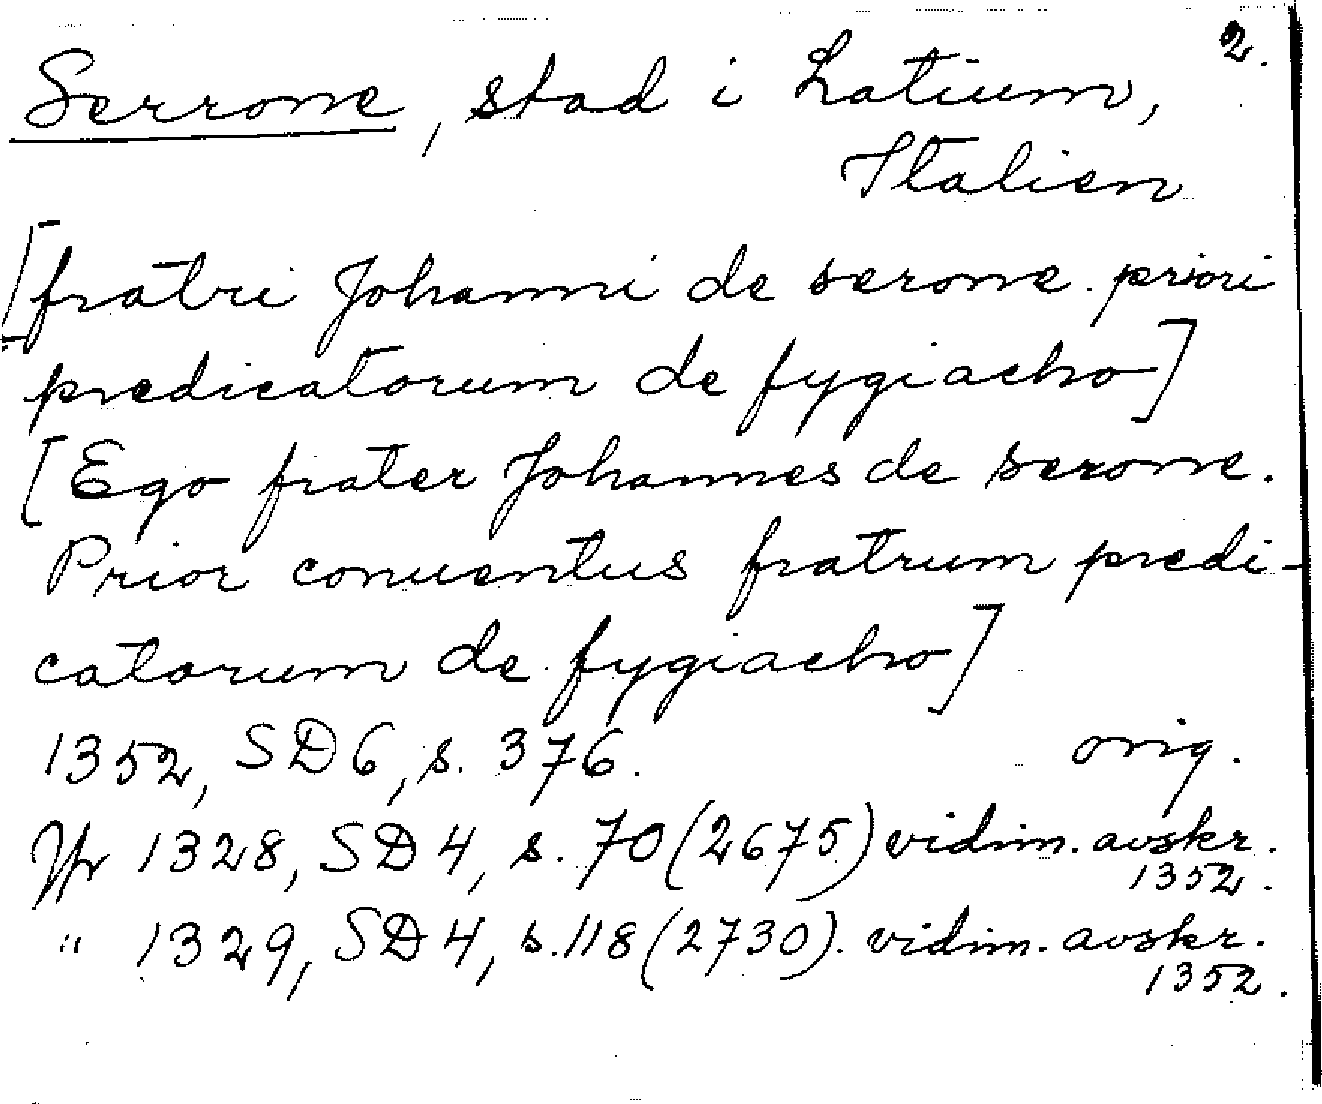 2.
Serrone, stad i Latium,
Italien
[fratri Johanni de serone. priori
predicatorum de fygiacho]
[Ego frater Johannes de serone.
Prior conuentus fratrum predi-
catorum de fygiacho]
1352, SD6, s. 376. orig.
Jfr 1328, SD4, s. 70 (2675) vidim. avskr.
1352.
" 1329, SD4, s. 118 (2730). vidim. avskr.
1352.